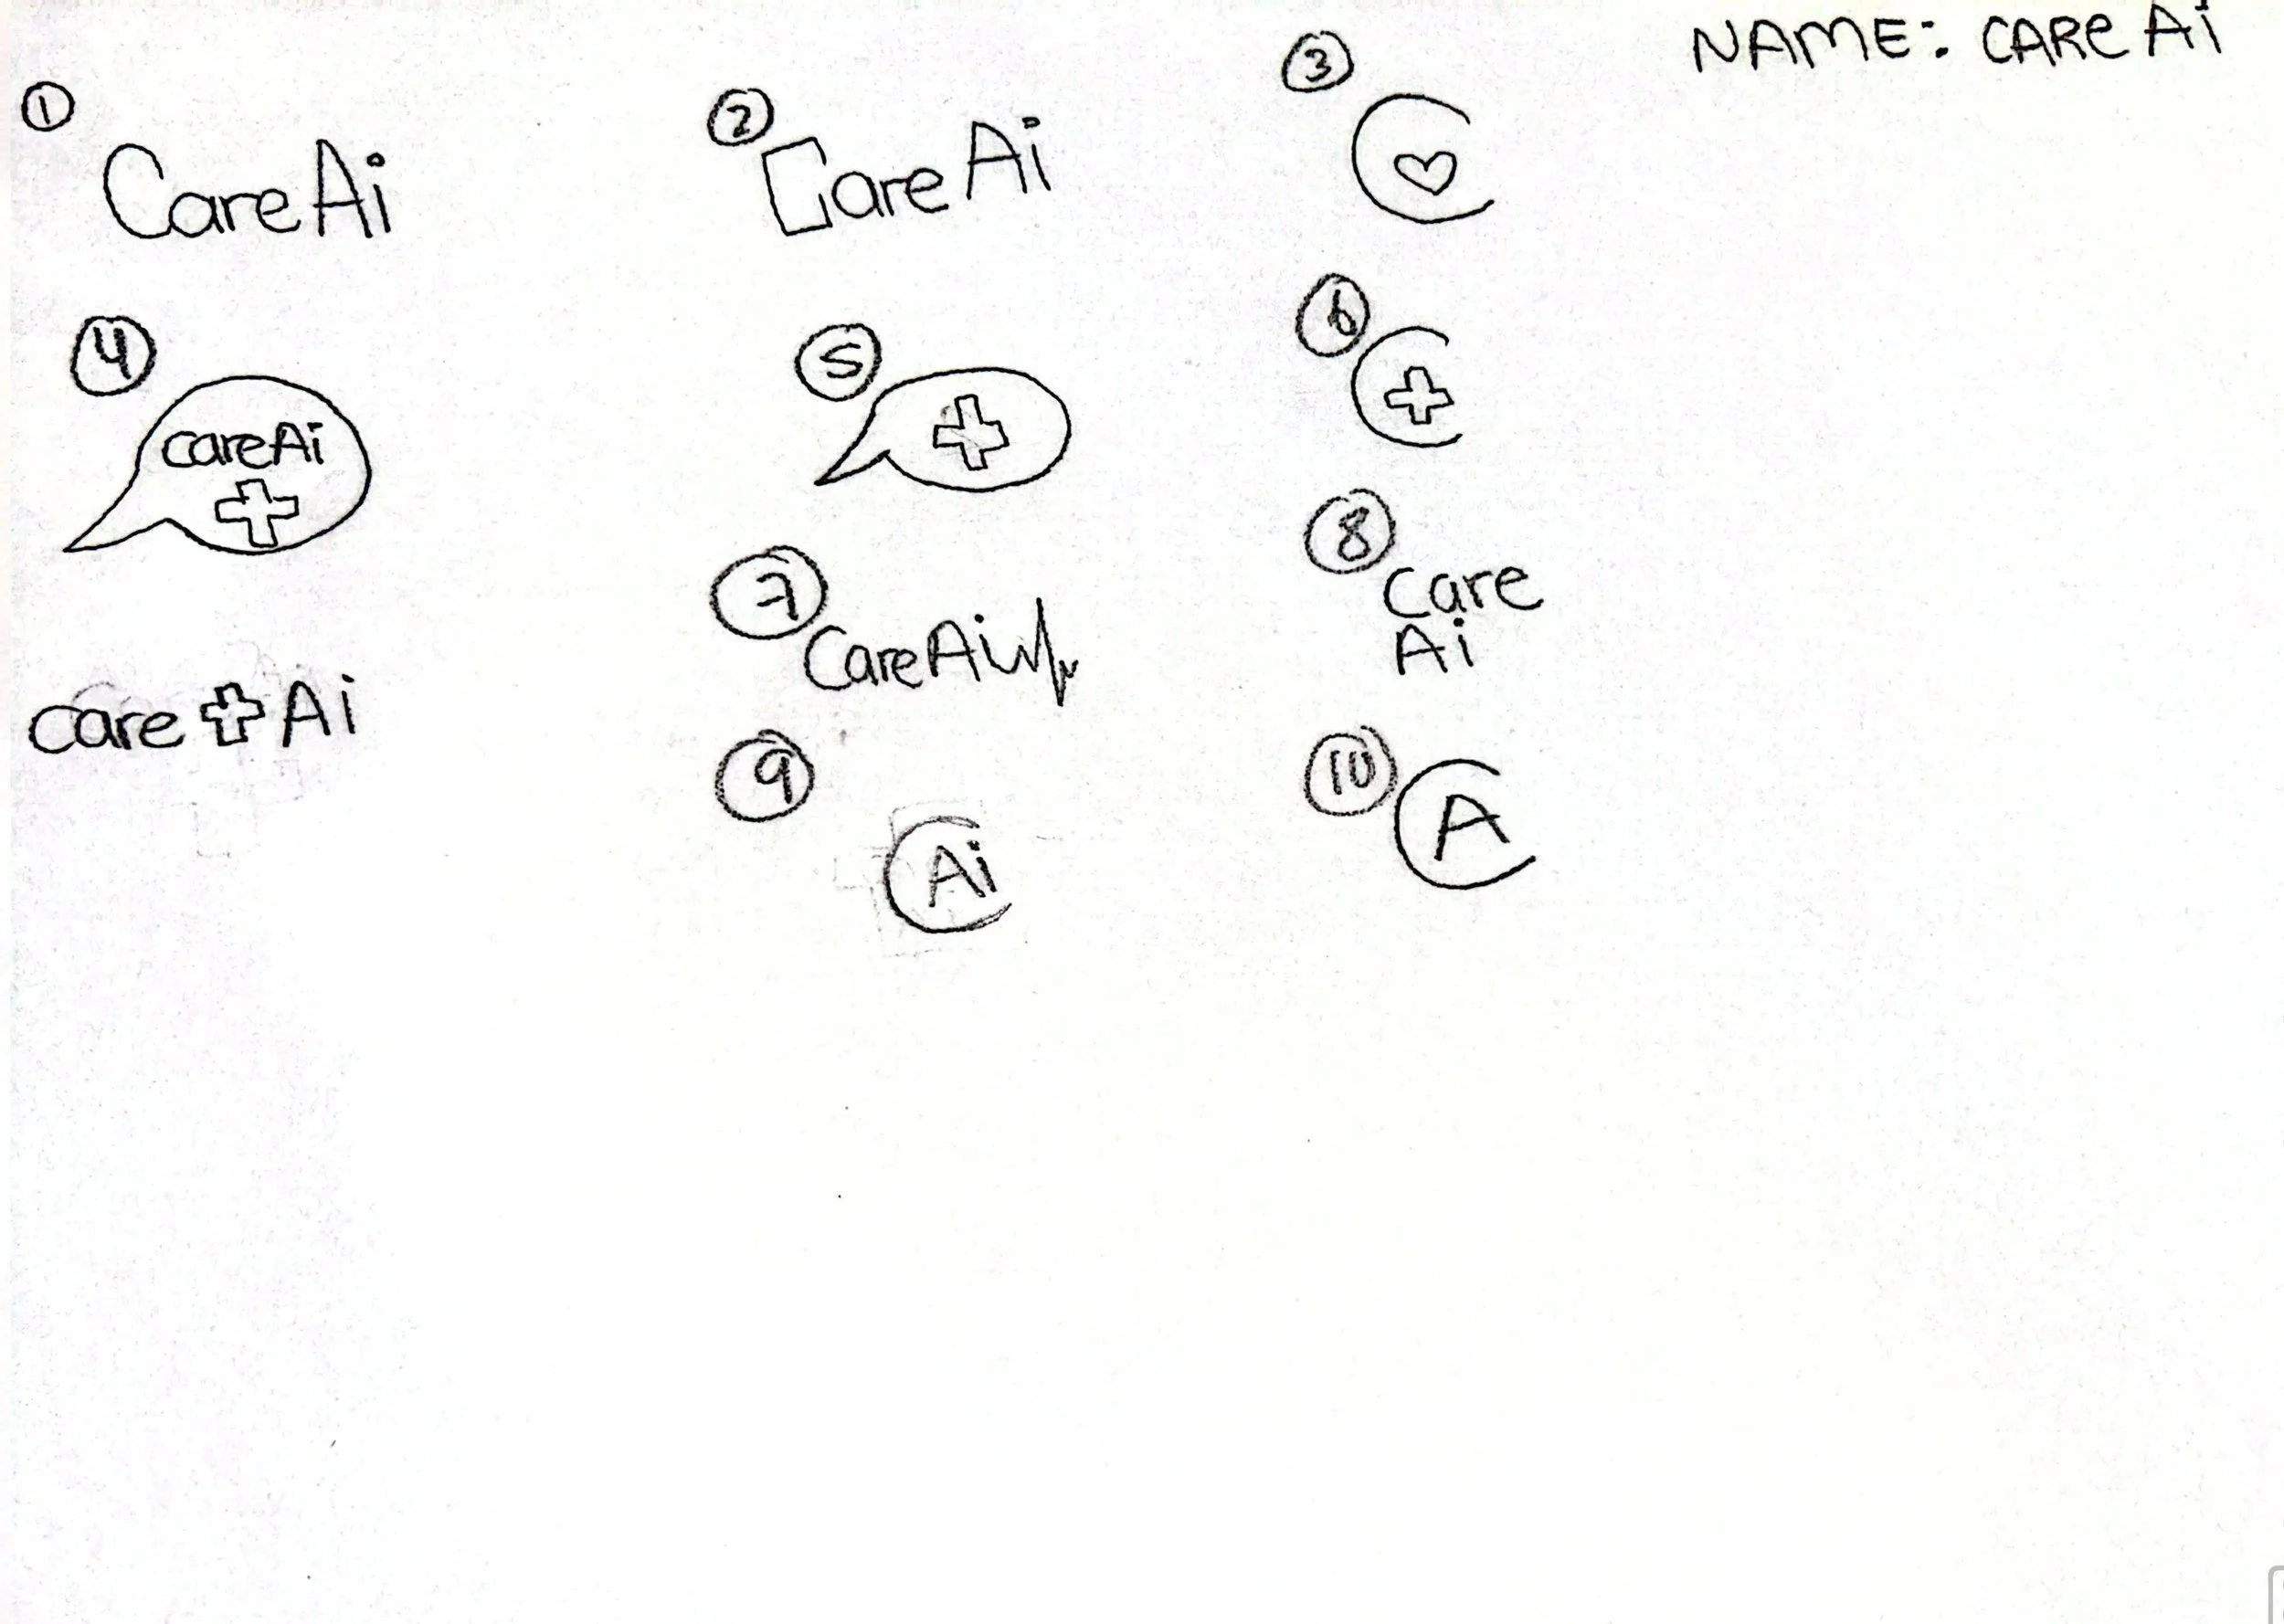 NAME: CARe Ai
1
CareAi
2
Care Ai
3
C
4
careAi
5
6
C
7
CareAi
8
care
Ai
care + Ai
9
C Ai
10
C A